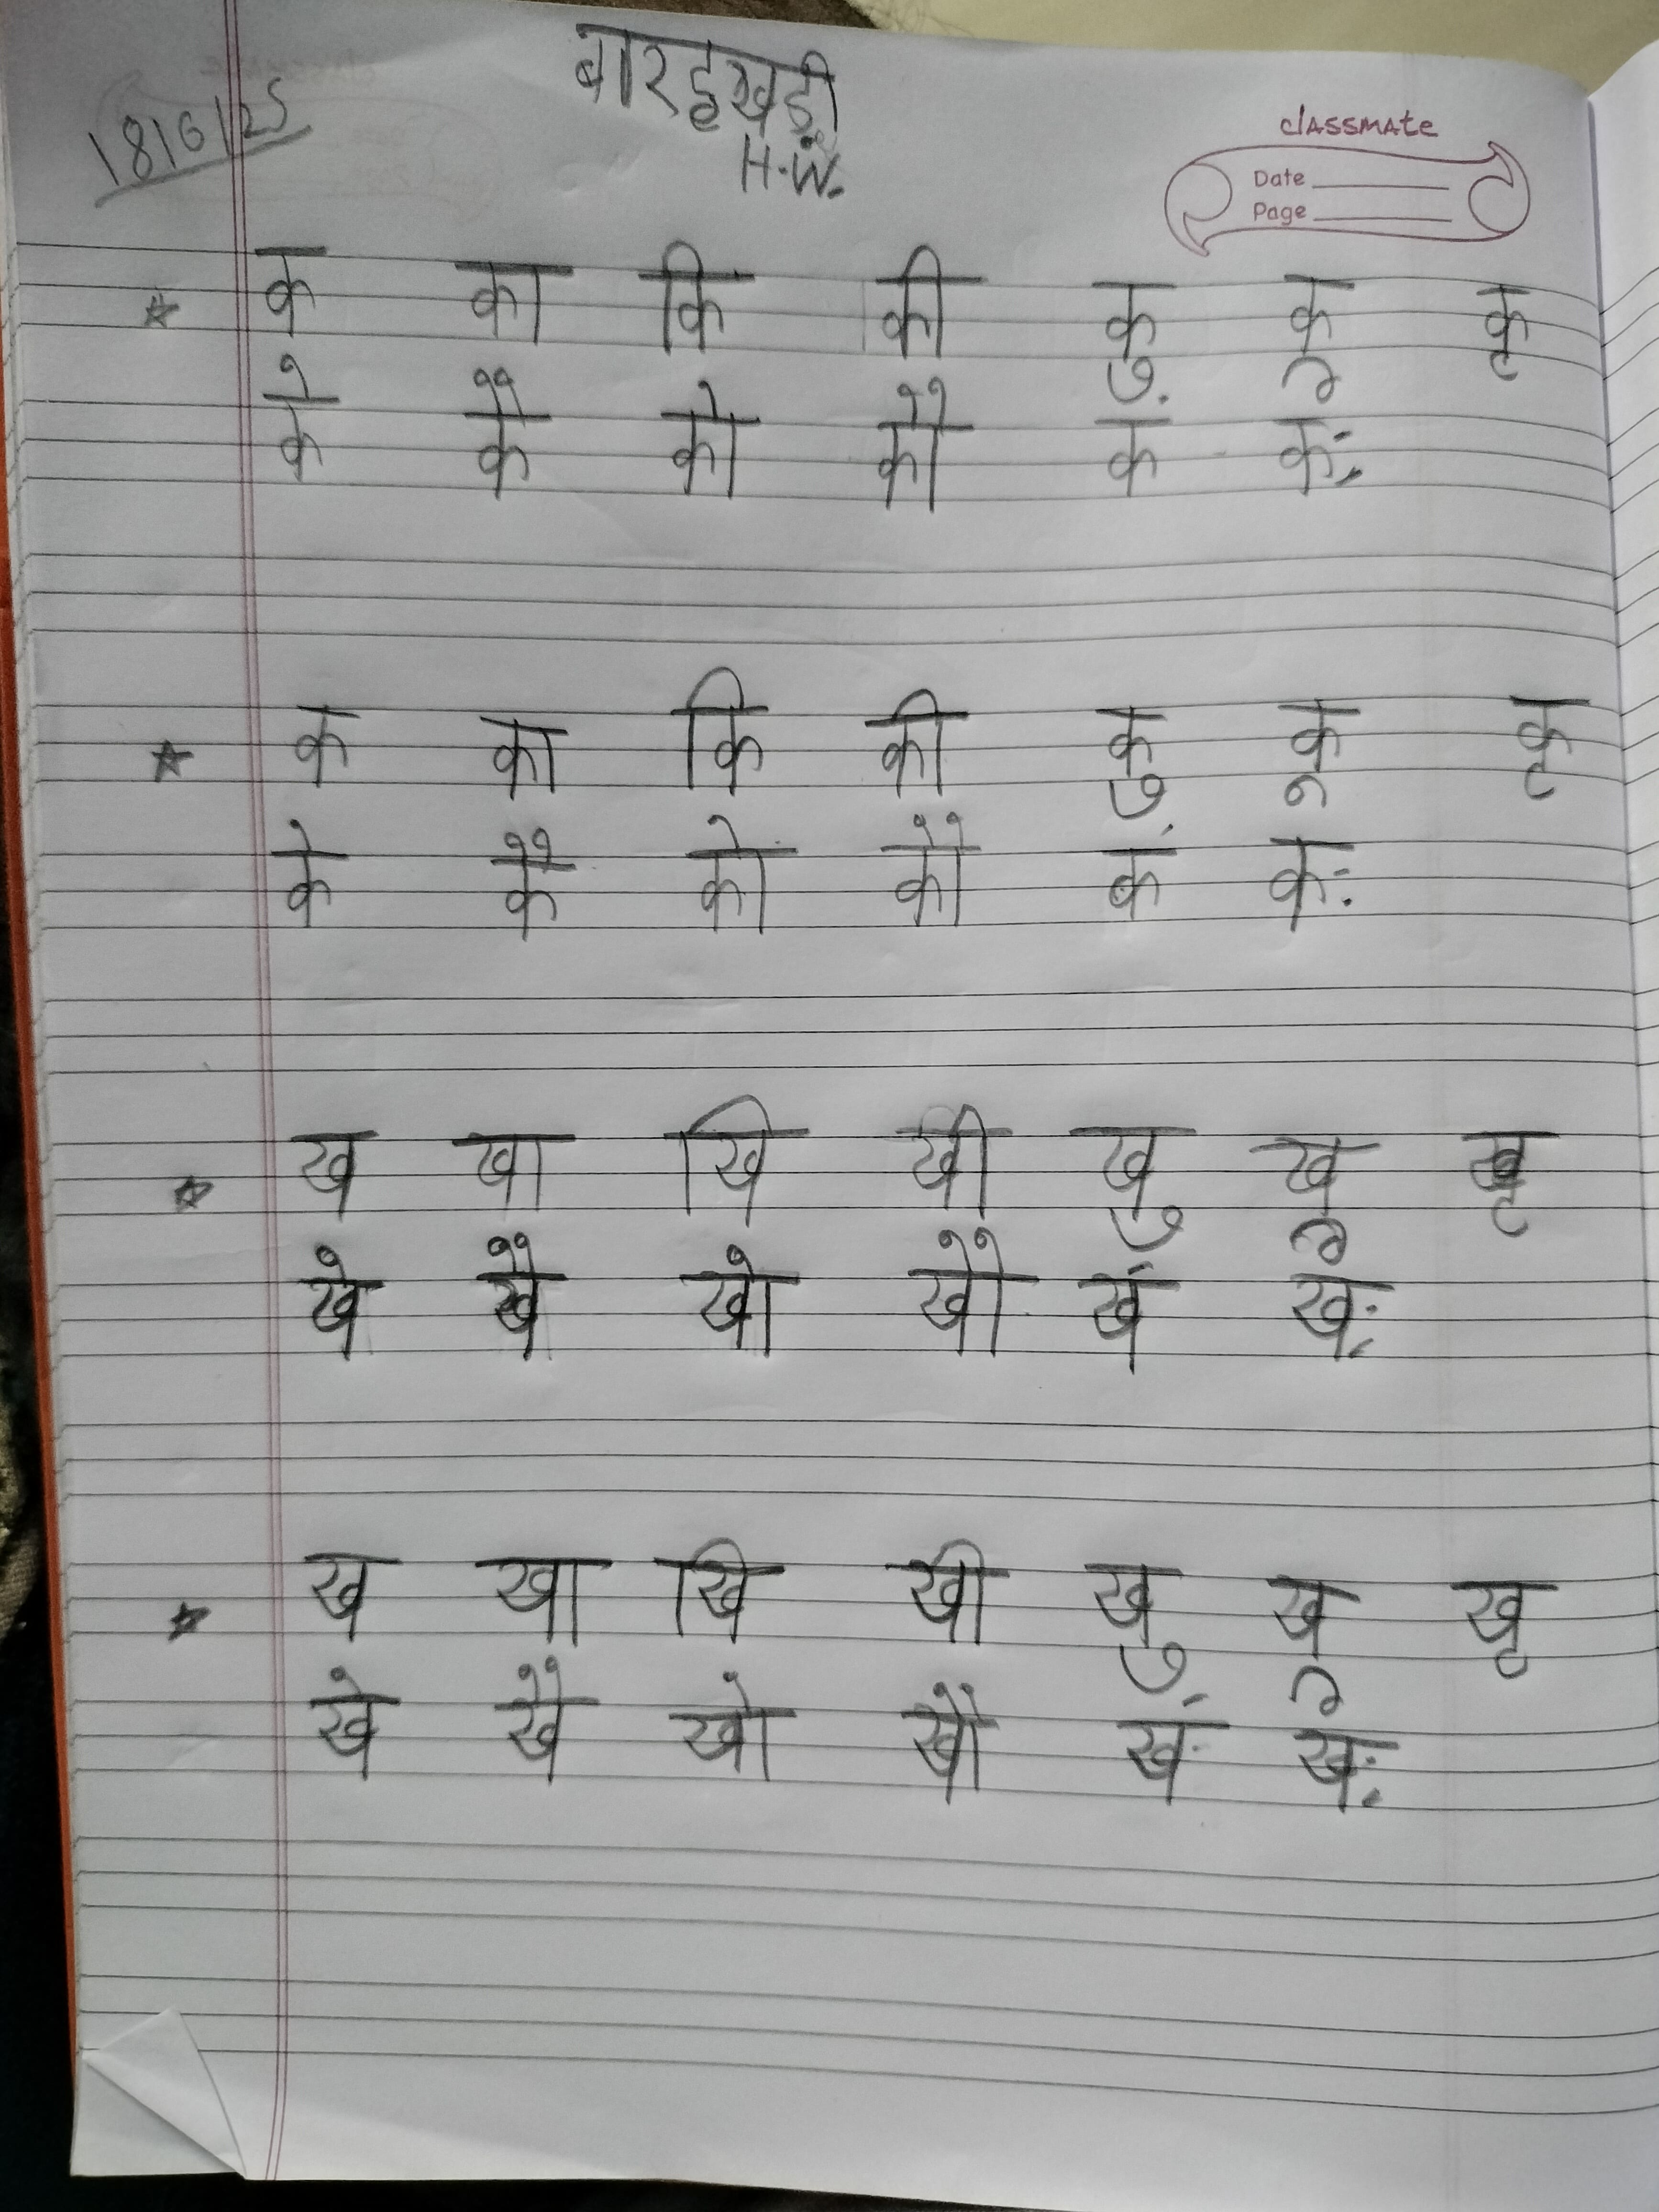 बारहखड़ी
18/6/25
H.W.
classmate
Date
Page
क का कि की कु कू कृ
के कै को कौ कं कः
क का कि की कु कू कृ
के कै को कौ कं कः
ख खा खि खी खु खू खृ
खे खै खो खौ खं खः
ख खा खि खी खु खू खृ
खे खै खो खौ खं खः